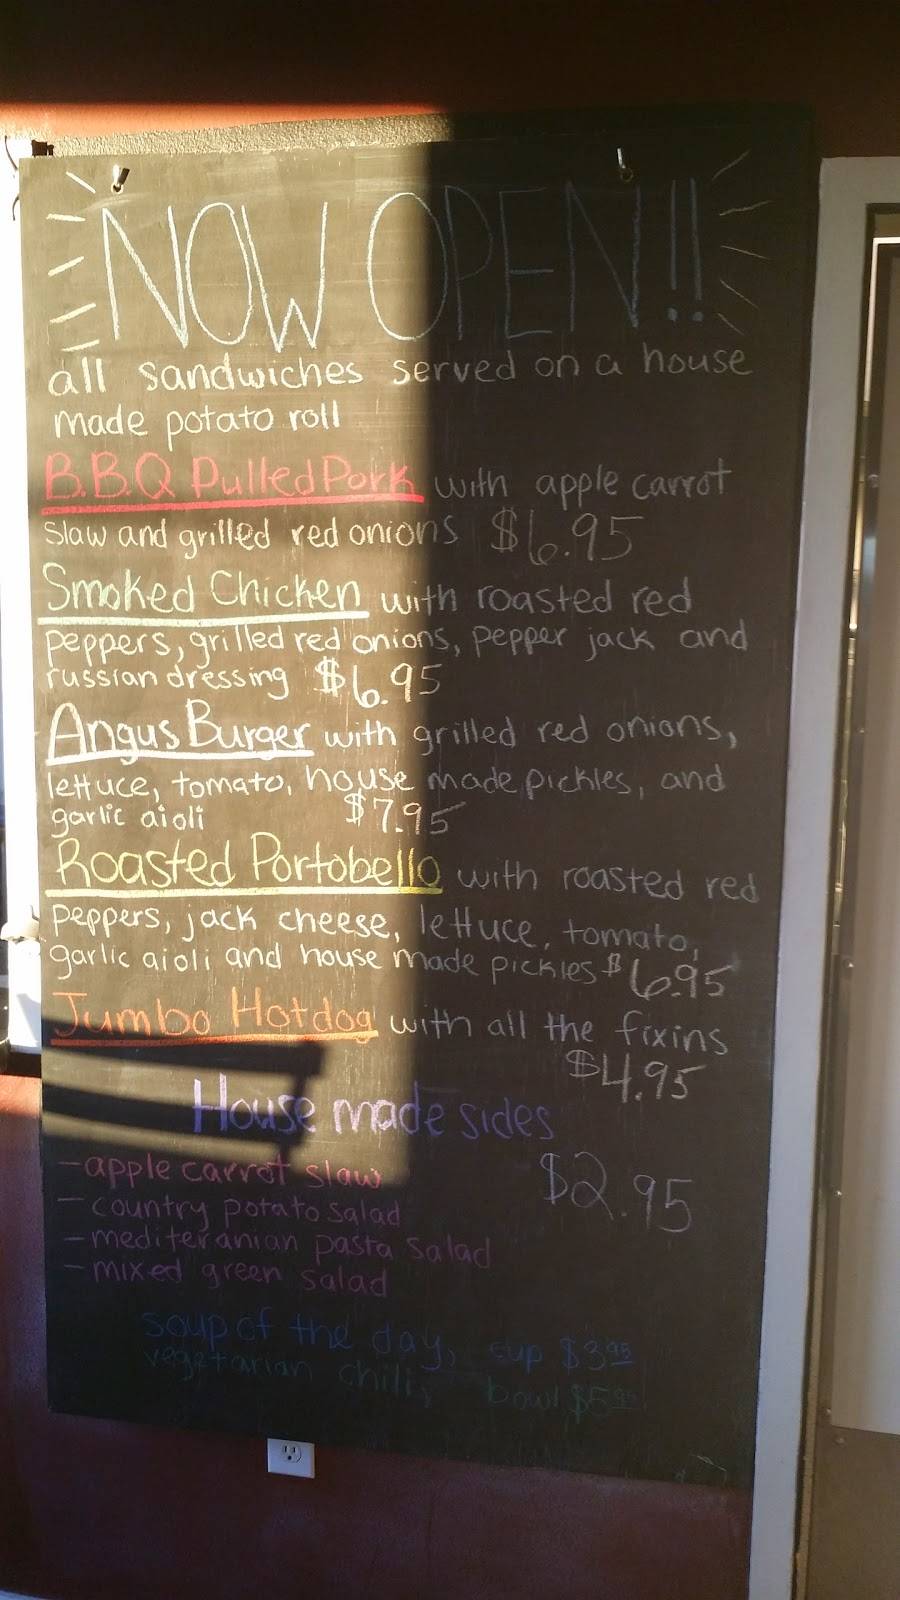 NOW OPEN!!
all sandwiches served on a house
made potato roll
B.B.Q Pulled Pork with apple carrot
slaw and grilled red onions $6.95
Smoked Chicken with roasted red
peppers, grilled red onions, pepper jack and
russian dressing $6.95
Angus Burger with grilled red onions,
lettuce, tomato, house made pickles, and
garlic aioli $7.95
Roasted Portobello with roasted red
peppers, jack cheese, lettuce, tomato,
garlic aioli and house made pickles $6.95
Jumbo Hotdog with all the fixins
$4.95
House made sides
- apple carrot slaw $2.95
- country potato salad
- mediteranian pasta salad
- mixed green salad
soup of the day, cup $3.95
vegetarian chili, bowl $5.95